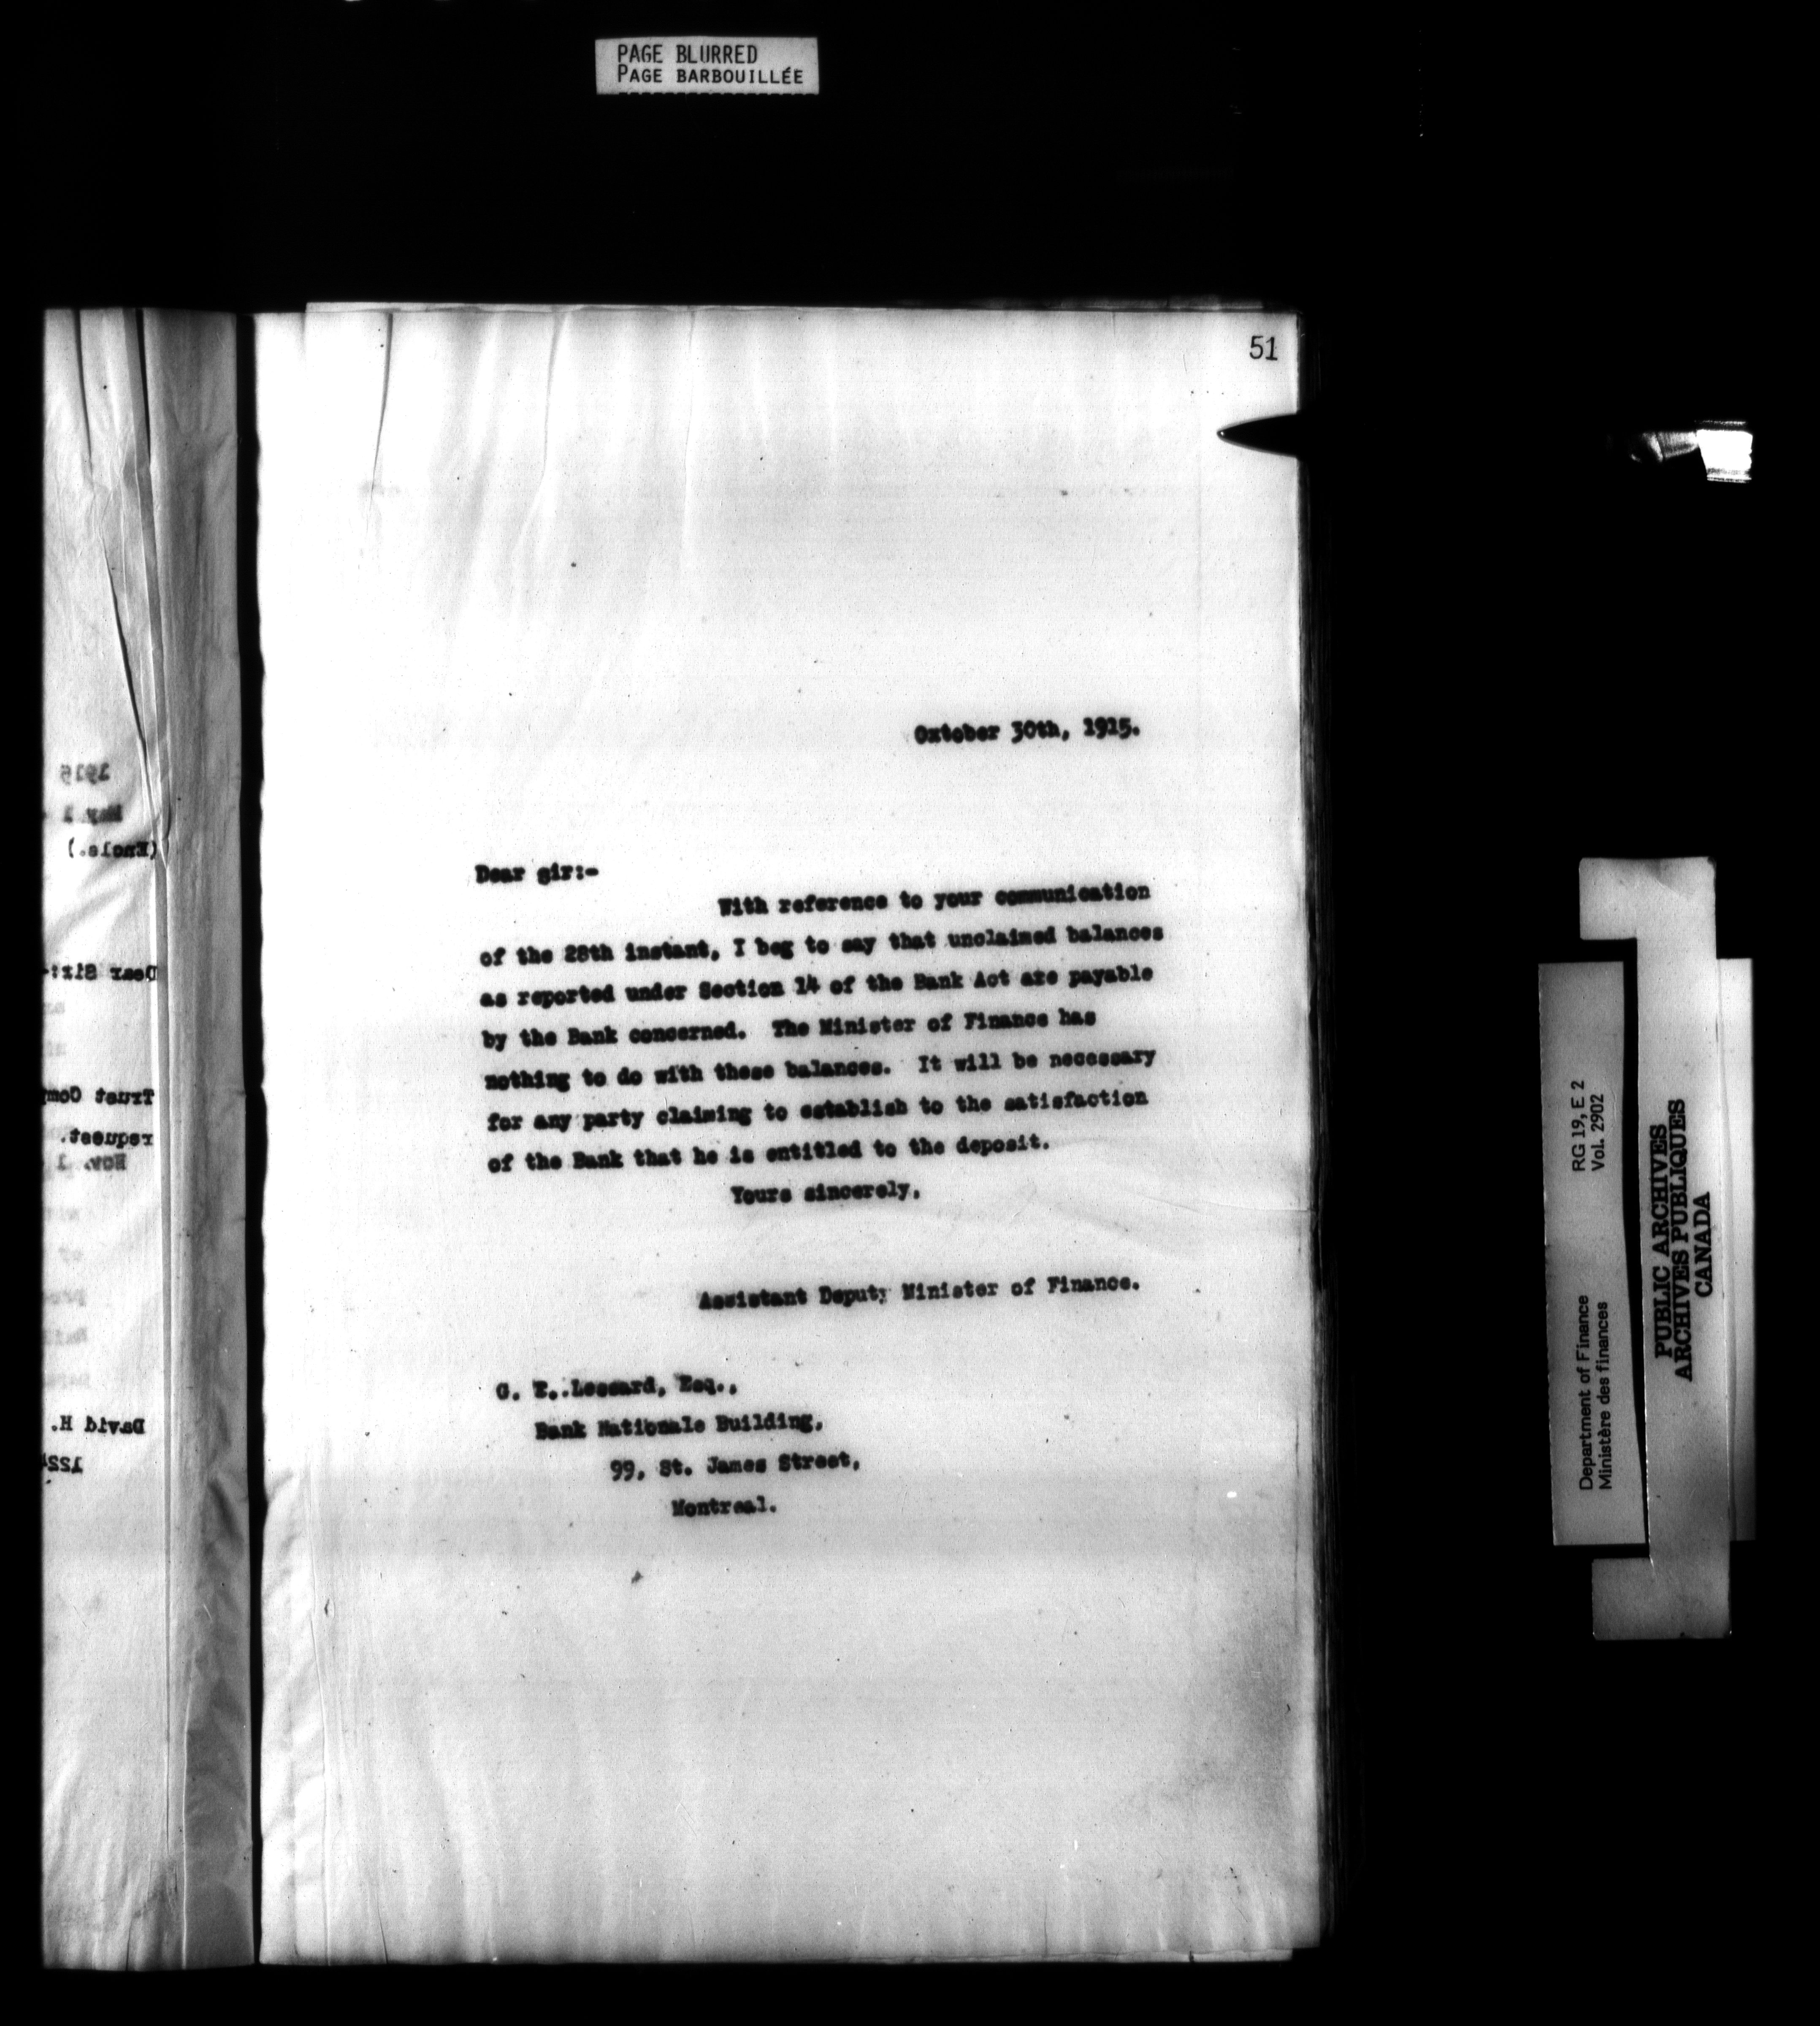 PAGE BLURRED
PAGE BARBOUILLÉE
51
October 30th, 1915.
Dear sir:-
With reference to your communication
of the 28th instant, I beg to say that unclaimed balances
as reported under Section 14 of the Bank Act are payable
by the Bank concerned. The Minister of Finance has
nothing to do with these balances. It will be necessary
for any party claiming to establish to the satisfaction
of the Bank that he is entitled to the deposit.
Yours sincerely,
Assistant Deputy Minister of Finance.
G. E. Lessard, Esq.,
Bank Nationale Building,
99, St. James Street,
Montreal.
1915
(Encls.)
Dear Sir:-
Trust Com
request.
Nov. 1
David H.
122
Department of Finance RG 19, E 2
Ministère des finances Vol. 2902
PUBLIC ARCHIVES
ARCHIVES PUBLIQUES
CANADA